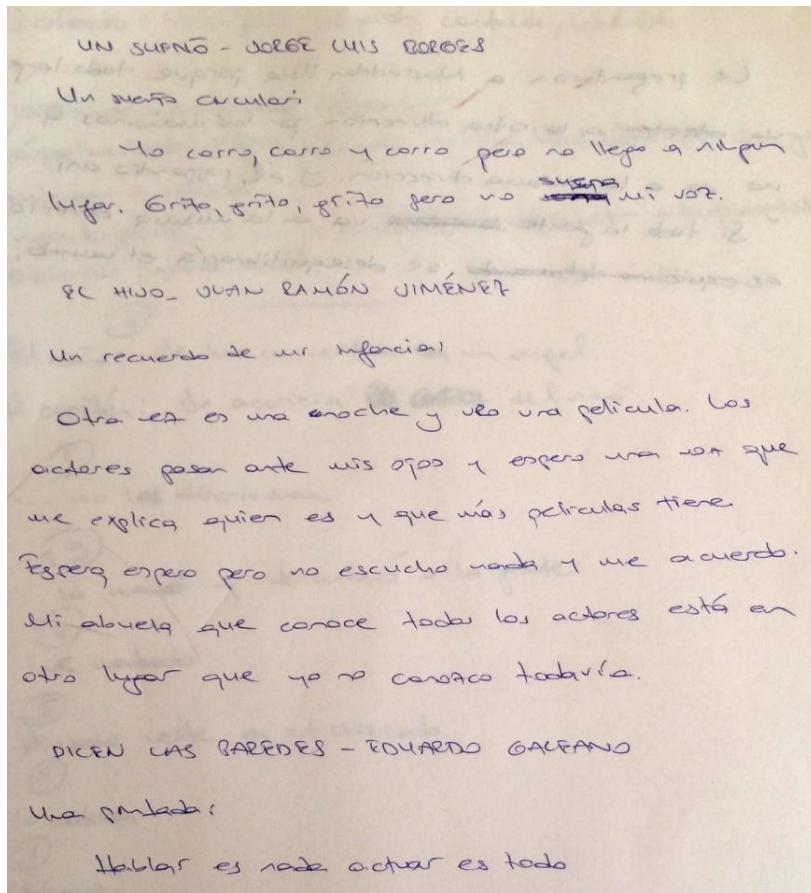 UN SUEÑO - JORGE LUIS BORGES
Un sueño circular:
Yo corro, corro y corro pero no llego a ningun
lugar. Grito, grito, grito pero no suena mi voz.
EL HIJO - JUAN RAMÓN JIMÉNEZ
Un recuerdo de mi infancia:
Otra vez es una noche y veo una película. Los
actores pasan ante mis ojos y espero una voz que
me explica quien es y que más películas tiene.
Espera espero pero no escucho nada y me acuerdo.
Mi abuela que conoce todos los actores está en
otro lugar que yo no conozco todavía.
DICEN LAS PAREDES - EDUARDO GALEANO
Una pintada:
Hablar es nada actuar es todo